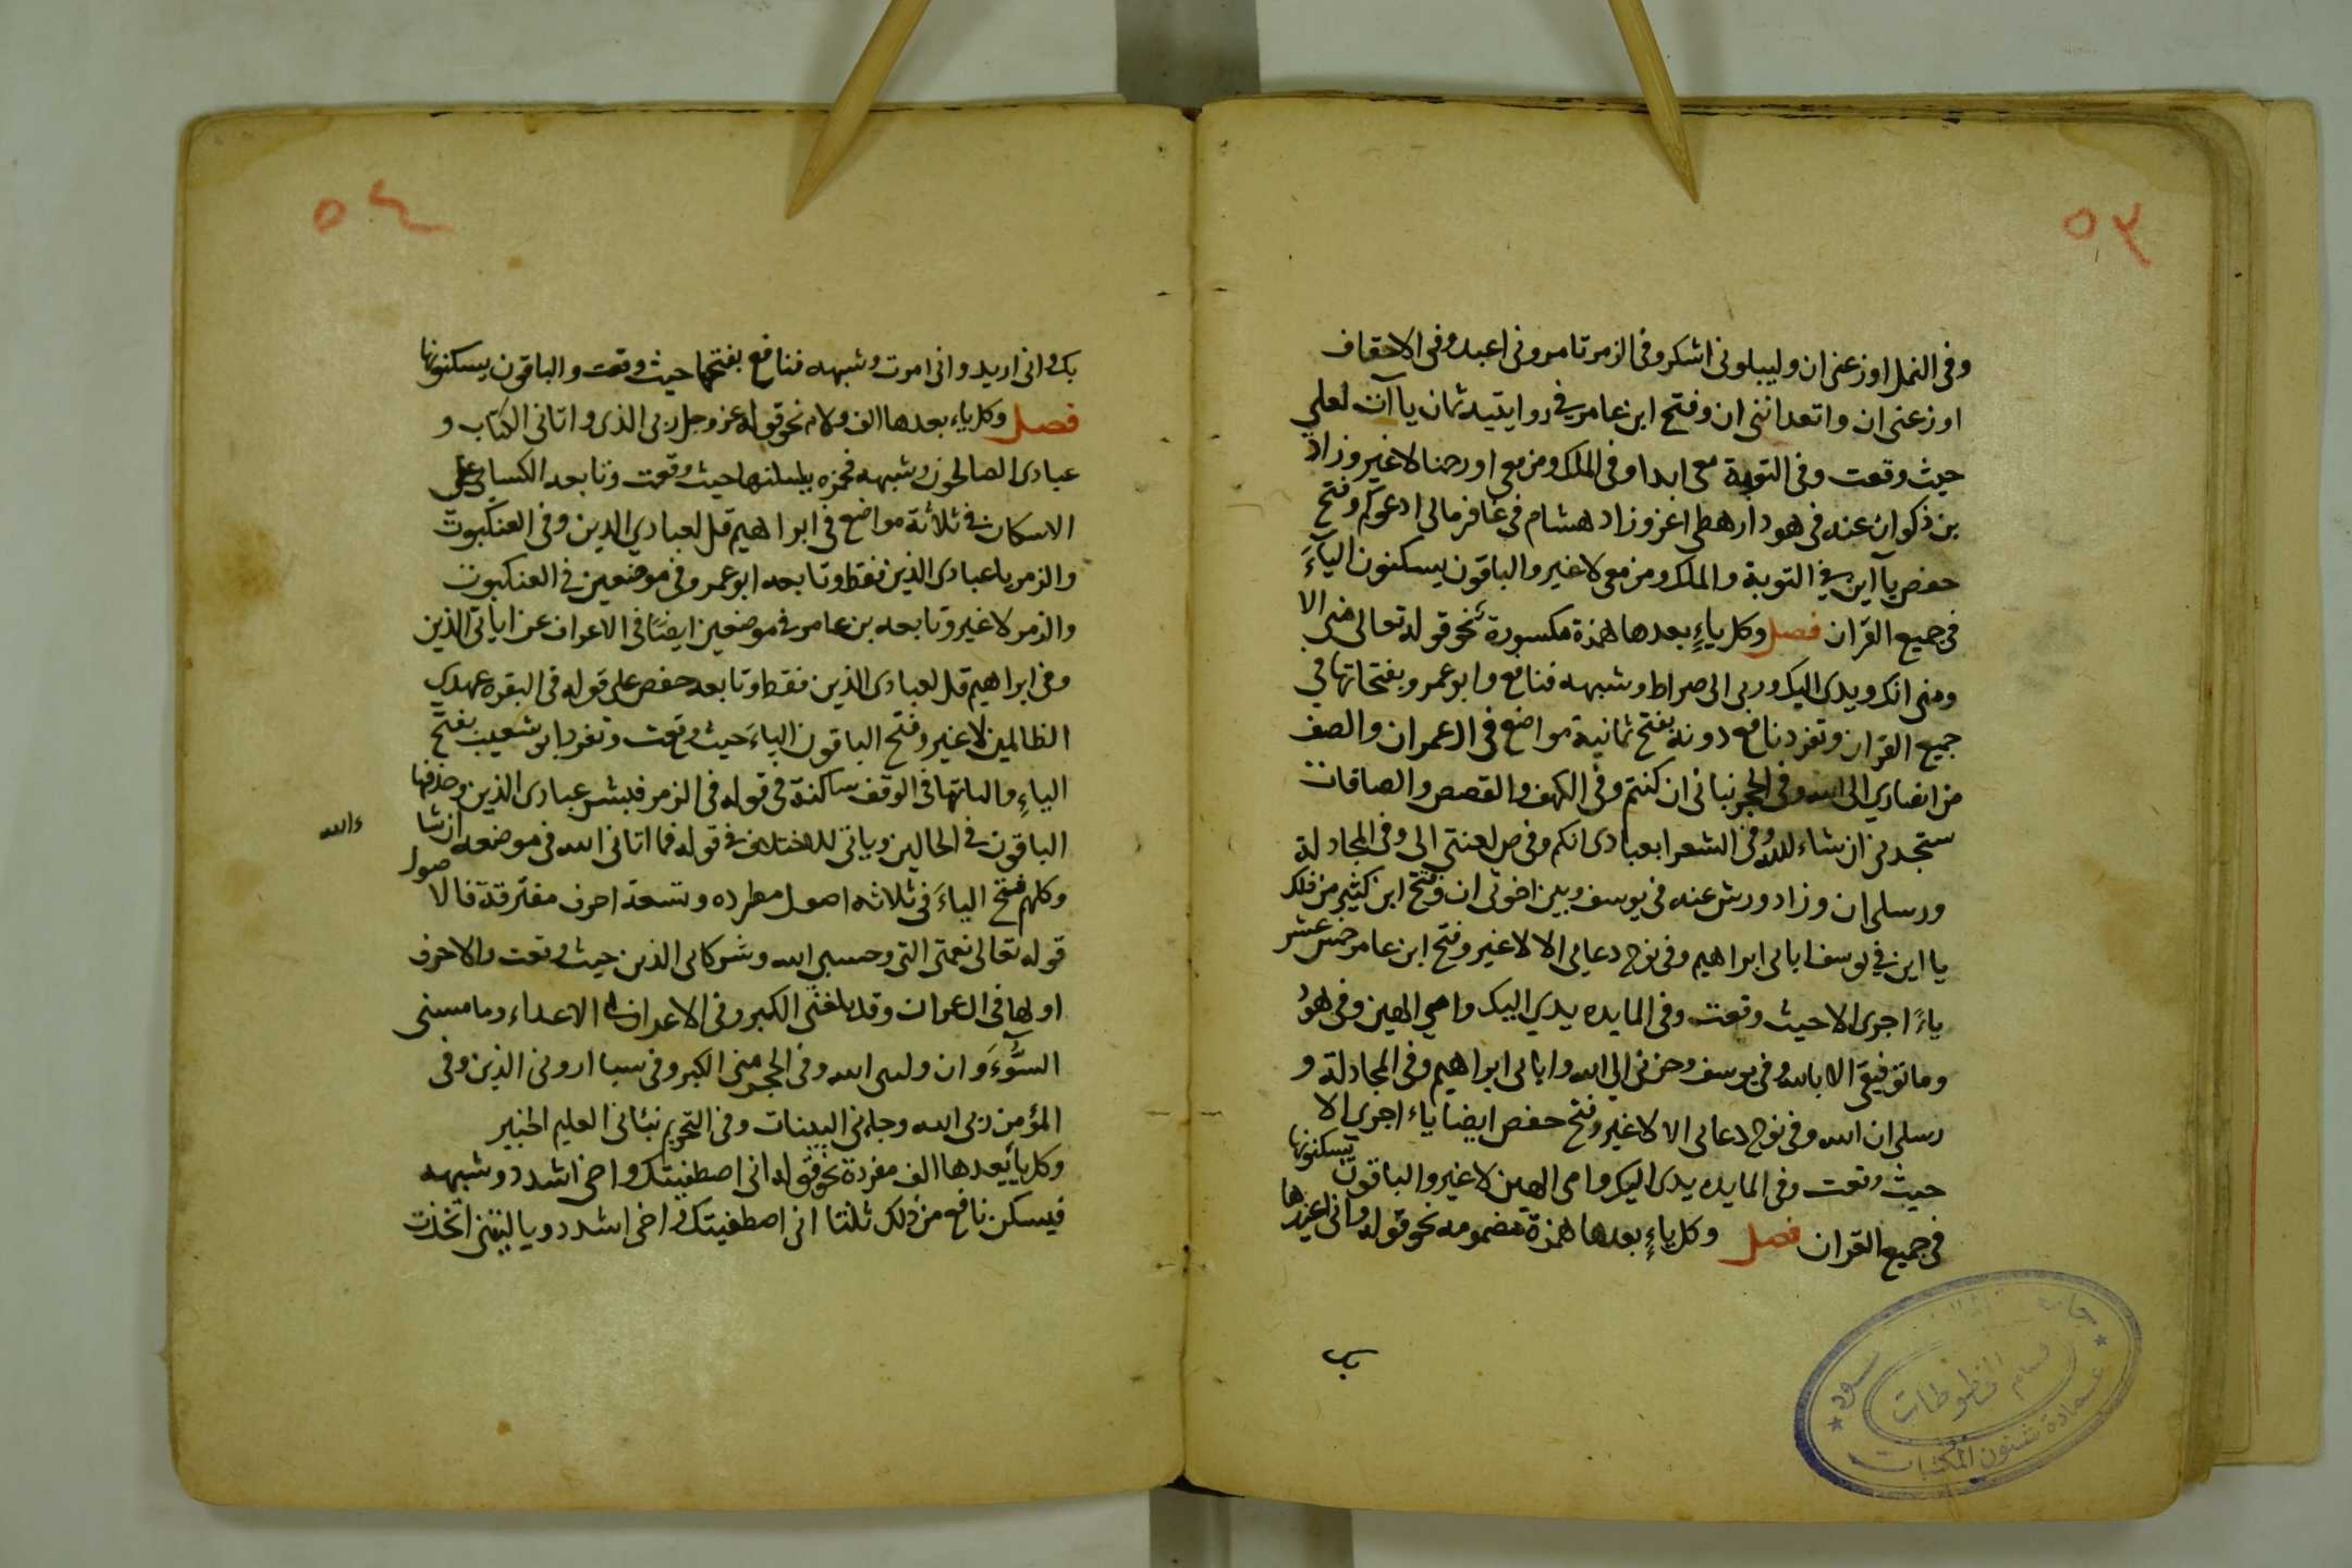 ٥٣
وفى النمل اوزعنى ان وليبلونى اشكر وفى الزمر تامرونى اعبد وفى الاحقاف
اوزعنى ان واتعداننى ان وفتح ابن عامر فى روايتيه ثمان ياآت لعلي
حيث وقعت وفى التوبة معى ابدا وفى الملك ومن معى او رحمنا لا غير وزاد
بن ذكوان عنه فى هود ارهطى اعز وزاد هشام فى غافر مالى ادعوكم وفتح
حفص يآاين فى التوبة والملك ومن معى لا غير والباقون يسكنون اليآءَ
فى جميع القران فصل وكل ياءٍ بعدها همزة مكسورة نحو قوله تعالى منى الا
ومنى انك ويدى اليك وربى الى صراط وشبهه فنافع وابو عمرو بفتحاتها في
جميع القران وتفرد نافع دونه بفتح ثمانية مواضع فى ال عمران والصف
من انصاري الى الله وفى الحجر بناتى ان كنتم وفى الكهف والقصص والصافات
ستجدنى ان شاء الله وفى الشعرا بعبادى انكم وفى ص لعنتى الى وفى المجادلة
ورسلى ان وزاد ورش عنه فى يوسف وبين اخوتى ان وفتح ابن كثير من ذلك
يا اين في يوسف ابائى ابراهيم وفى نوح دعايى الا لا غير وفتح ابن عامر خمس عشر
ياءً اجرى الا حيث وقعت وفى المايده يدي اليك وامي الهين وفى هود
وما توفيقى الا بالله وفى يوسف وحزنى الى الله وابائى ابراهيم وفى المجادلة و
رسلى ان الله وفى نوح دعائى الا لا غير وفتح حفص ايضا ياء اجرى الا
حيث وقعت وفى المايده يدى اليك وامى الهين لا غير والباقون يسكنونها
فى جميع القران فصل وكل ياءٍ بعدها همزة مضمومه نحو قوله وانى اعيذها
بك
جامعة سعود
قسم المخطوطات
عمادة شئون المكتبات
٥٤
بك وانى اريد وانى امرت وشبهه فنافع بفتحها حيث وقعت والباقون يسكنونها
فصل وكل ياء بعدها الف ولام نحو قوله عز وجل ربى الذى واتانى الكتاب و
عبادى الصالحون وشبهه فحمزه يسكنها حيث وقعت وتابعه الكسائى على
الاسكان فى ثلاثة مواضع فى ابراهيم قل لعبادي الذين وفى العنكبوت
والزمر يا عبادى الذين فقط وتابعه ابو عمرو فى موضعين فى العنكبوت
والزمر لا غير وتابعه بن عامر فى موضعين ايضًا فى الاعراف عن اياتى الذين
وفى ابراهيم قل لعبادى الذين فقط وتابعه حفص على قوله فى البقره عهدي
الظالمين لا غير وفتح الباقون الياءَ حيث وقعت وتفرد ابو شعيب بفتح
الياءِ واثباتها فى الوقف ساكنة فى قوله فى الزمر فبشر عبادى الذين وحذفها
الباقون فى الحالين وياتى الاختلاف فى قوله فما اتانى الله فى موضعه ان شا
ءالله
وكلهم فتح الياءَ فى ثلاثه اصول مطرده وتسعة احرف مفترقة فالاصول
قوله تعالى نعمتى التى وحسبي الله وشركائى الذين حيث وقعت والاحرف
اولها فى ال عمران وقد بلغنى الكبر وفى الاعراف بى الاعداء وما مسنى
السُّوءَ وان وليى الله وفى الحجر مسنى الكبر وفى سبا ارونى الذين وفى
المؤمن ربى الله وجاءنى البينات وفى التحريم نبئانى العليم الخبير
وكل ياء بعدها الف مفردة نحو قوله انى اصطفيتك واخى اشدد وشبهه
فيسكن نافع من ذلك ثلثا انى اصطفيتك واخى اشدد ويا ليتنى اتخذت